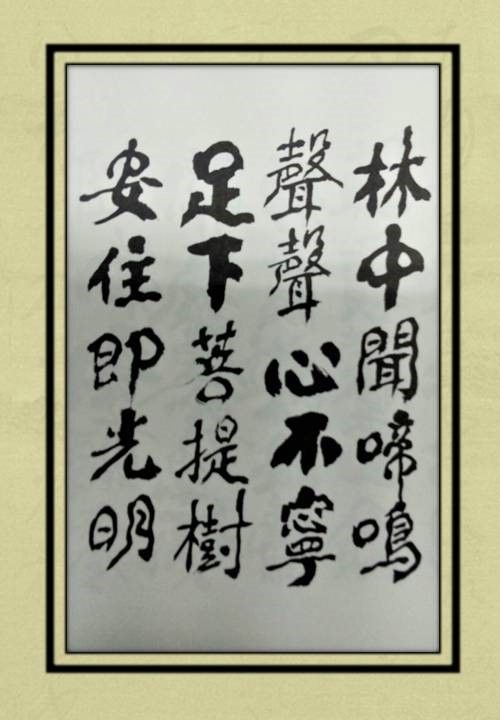 林中聞啼鳴
聲聲心不寧
足下菩提樹
安住即光明